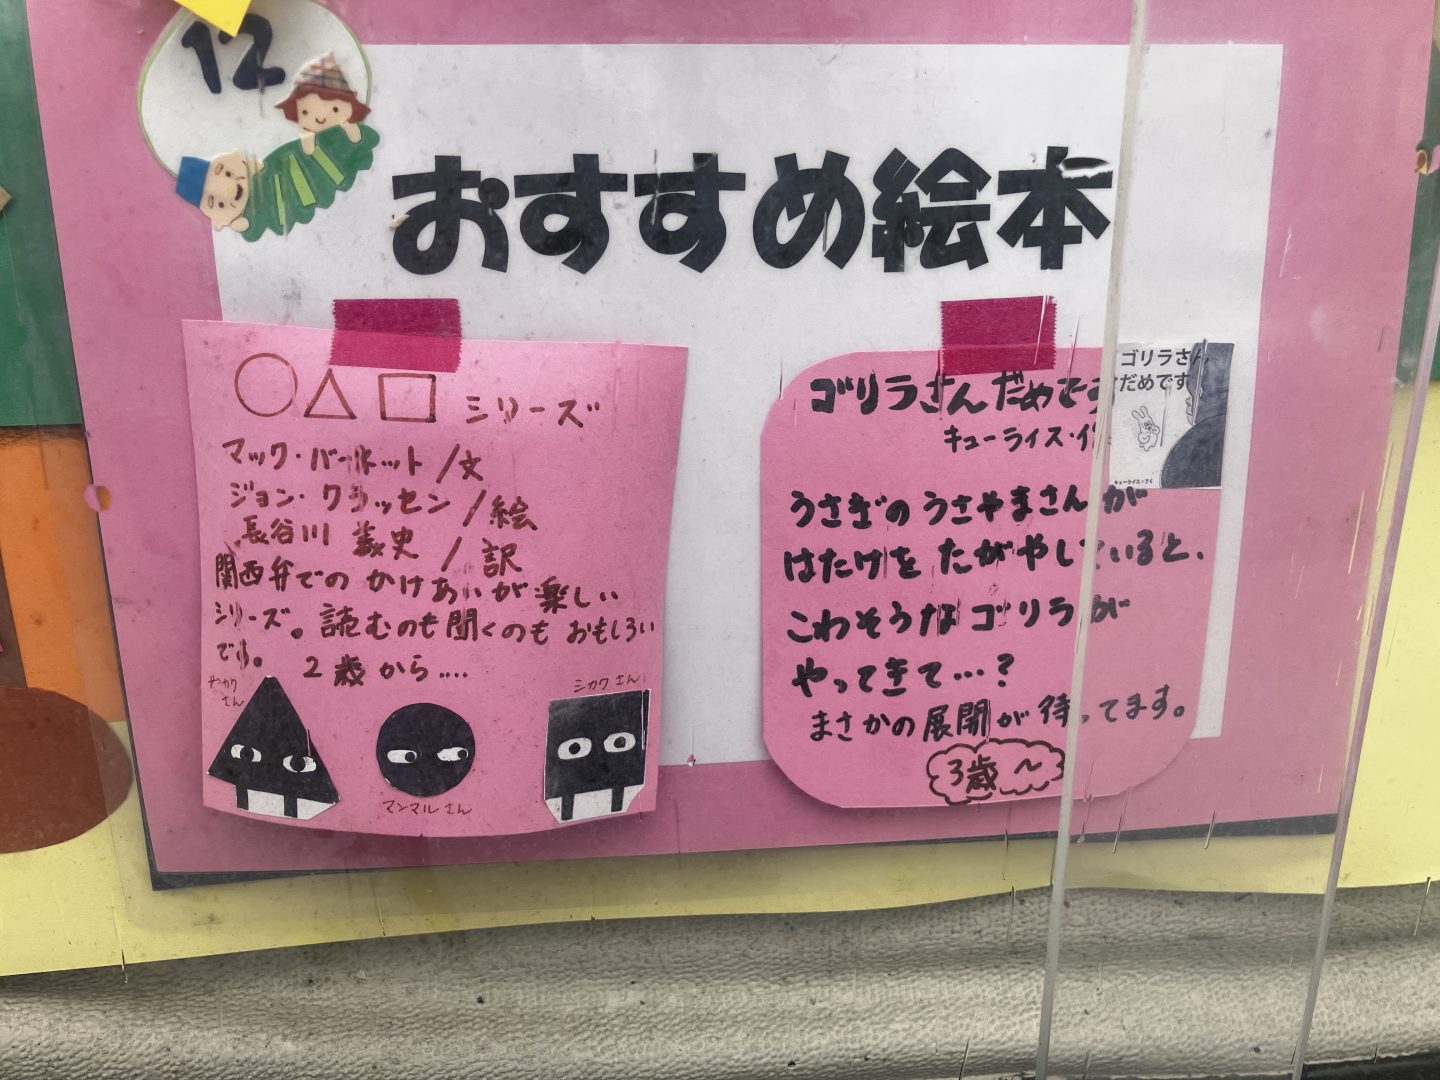 12
おすすめ絵本
○△□シリーズ
マック・バーネット/文
ジョン・クラッセン/絵
長谷川 義史/訳
関西弁でのかけあいが楽しい
シリーズ。読むのも聞くのもおもしろい
です。 2歳から‥‥
サンカクさん
マンマルさん
シカクさん
ゴリラさんだめで
キューライス・作
ゴリラさん
だめです
キューライス・さく
うさぎのうさやまさんが
はたけをたがやしていると、
こわそうなゴリラが
やってきて…?
まさかの展開が待ってます。
3歳〜